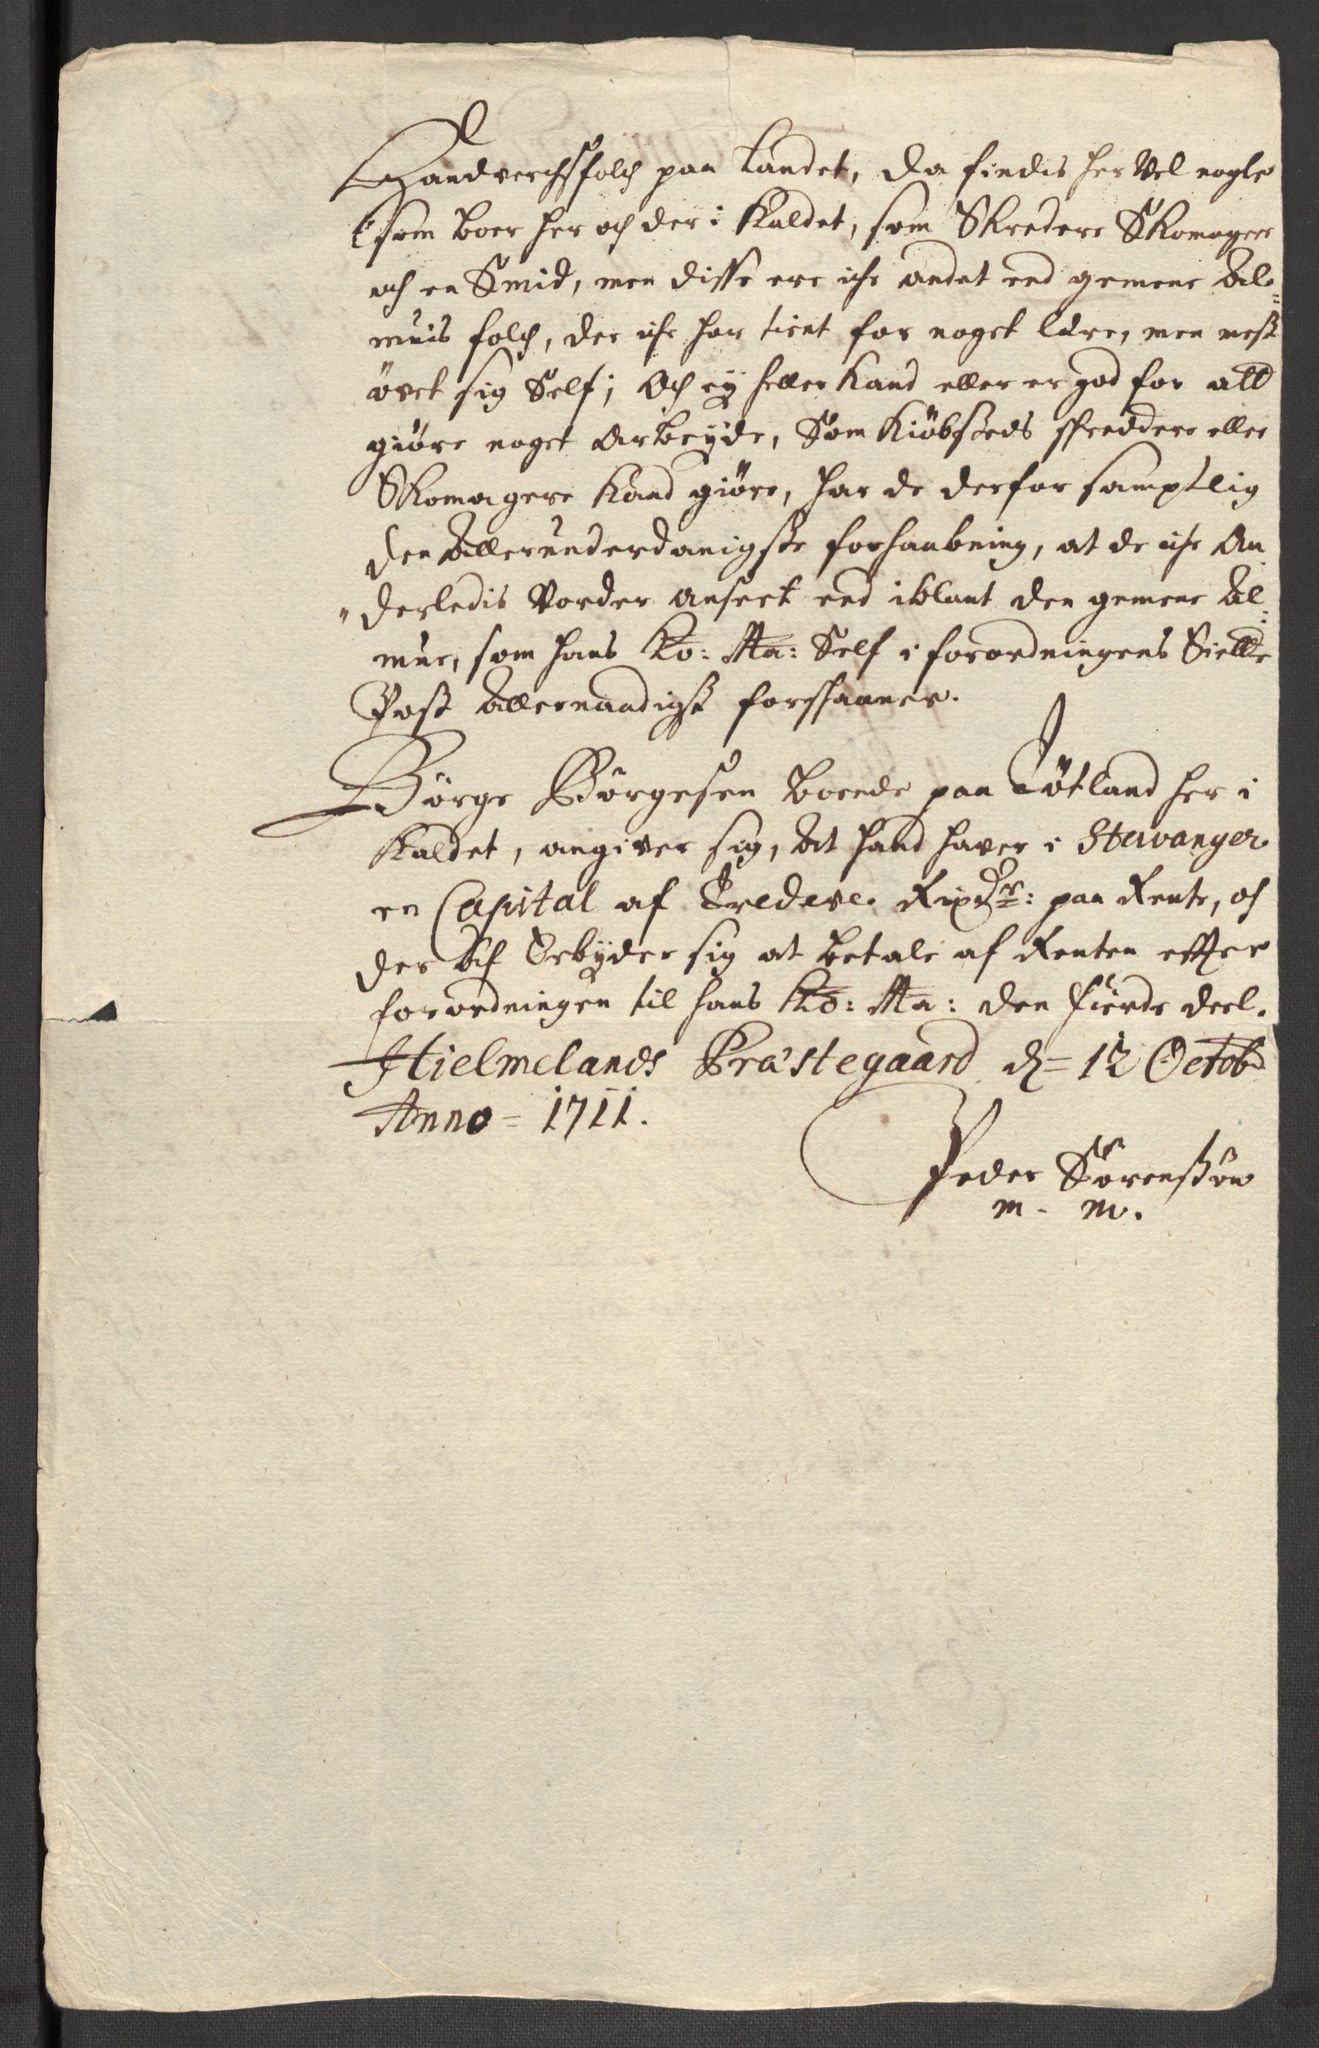 Handverchsfolch paa Landet, da findis her Vel nogle
som boer her och der i Kaldet, som Skredere Skomagere
och en Smid, men disse ere iche andet end gemene Al=
muis folch, der iche har tient for noget lære, men mest
øvet sig Self; Och ey heller Kand eller er god for att
giöre noget Arbeyde, Som Kiöbsteds Skreddere eller
Skomagere Kand giöre, har de derfor samptlig
den Allerunderdanigste forhaabning, at de iche An
"derledis Vorder anseet end iblant den gemene Al=
mue, som hans Ko: Ma: Self i forordningens Siette
Post Allernaadigst forskaaner.
Börge Börgesen boende paa Jötland her i
Kaldet, angiver sig, At hand haver i Stavanger
en Capital af Tredeve Rixdr: paa Rente, och
der Af Erbyder sig at betale af Renten effter
forordningen til hans Ko: Ma: den fierde deel.
Hielmelands Præstegaard d= 12 Octob
Anno = 1711.
Peder Sørensøn
m. m.